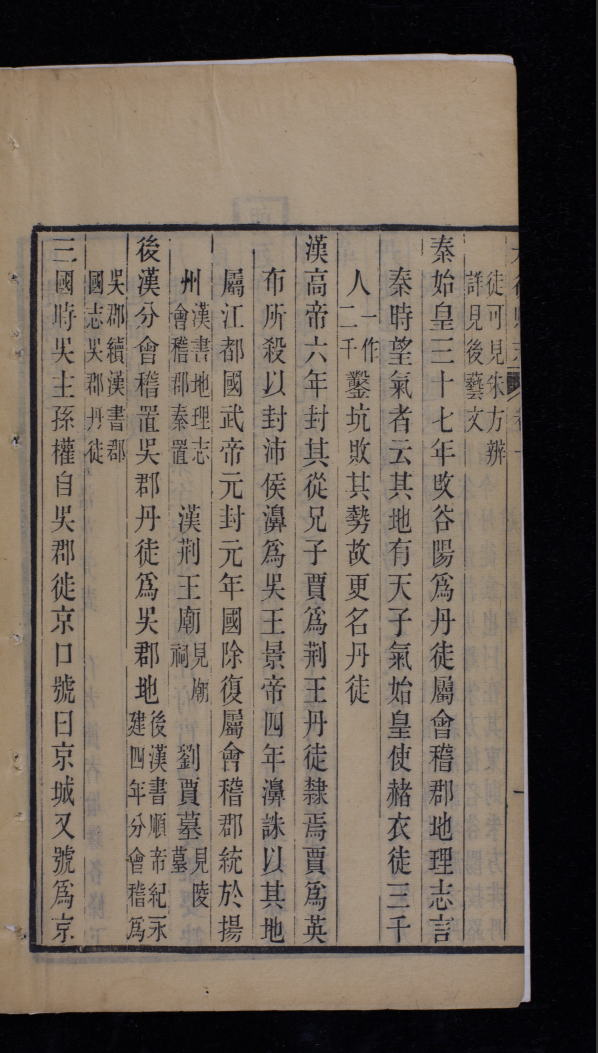 徒可見朱方辨
詳見後藝文
秦始皇三十七年改谷陽爲丹徒屬會稽郡地理志言
秦時望氣者云其地有天子氣始皇使赭衣徒三千
人一作二千鑿坑敗其勢故更名丹徒
漢高帝六年封其從兄子賈爲荆王丹徒隸焉賈爲英
布所殺以封沛侯濞爲吴王景帝四年濞誅以其地
屬江都國武帝元封元年國除復屬會稽郡統於揚
州漢書地理志會稽郡秦置漢荆王廟見廟祠劉賈墓見陵墓
後漢分會稽置吴郡丹徒爲吴郡地後漢書順帝紀永建四年分會稽爲
吴郡續漢書郡國志吴郡丹徒
三國時吴主孫權自吴郡徙京口號曰京城又號爲京